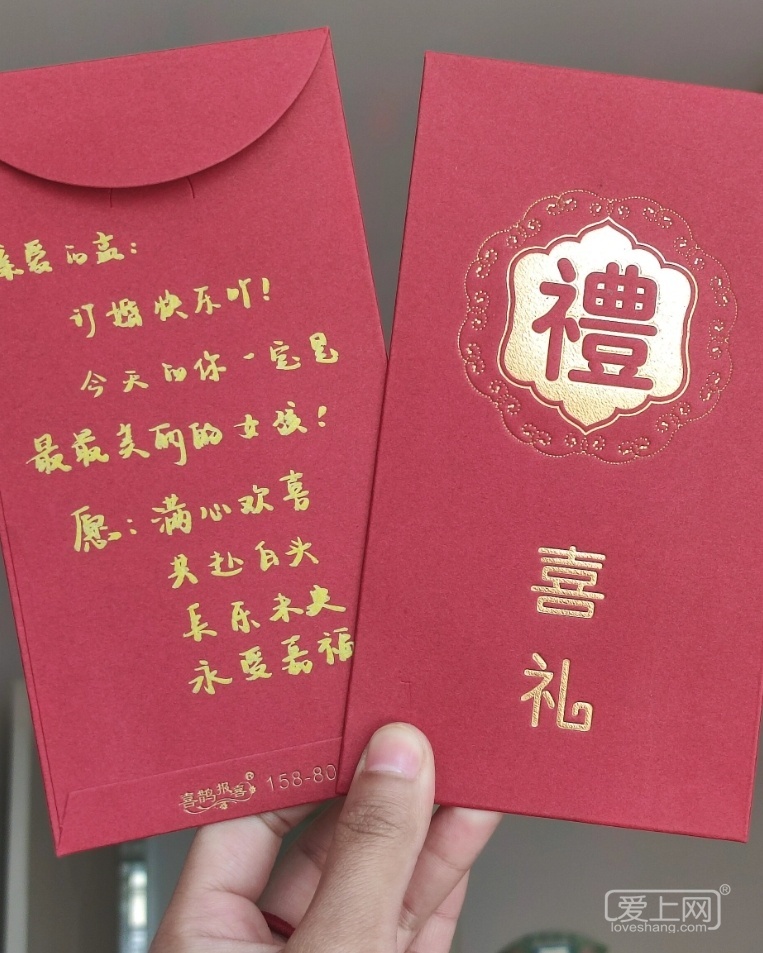 亲爱的孟:
订婚快乐吖!
今天的你一定是
最最美丽的女孩!
愿:满心欢喜
共赴白头
长乐未央
永受嘉福
喜鹊报喜®
158-80
禮
喜
礼
爱上网®
loveshang.com